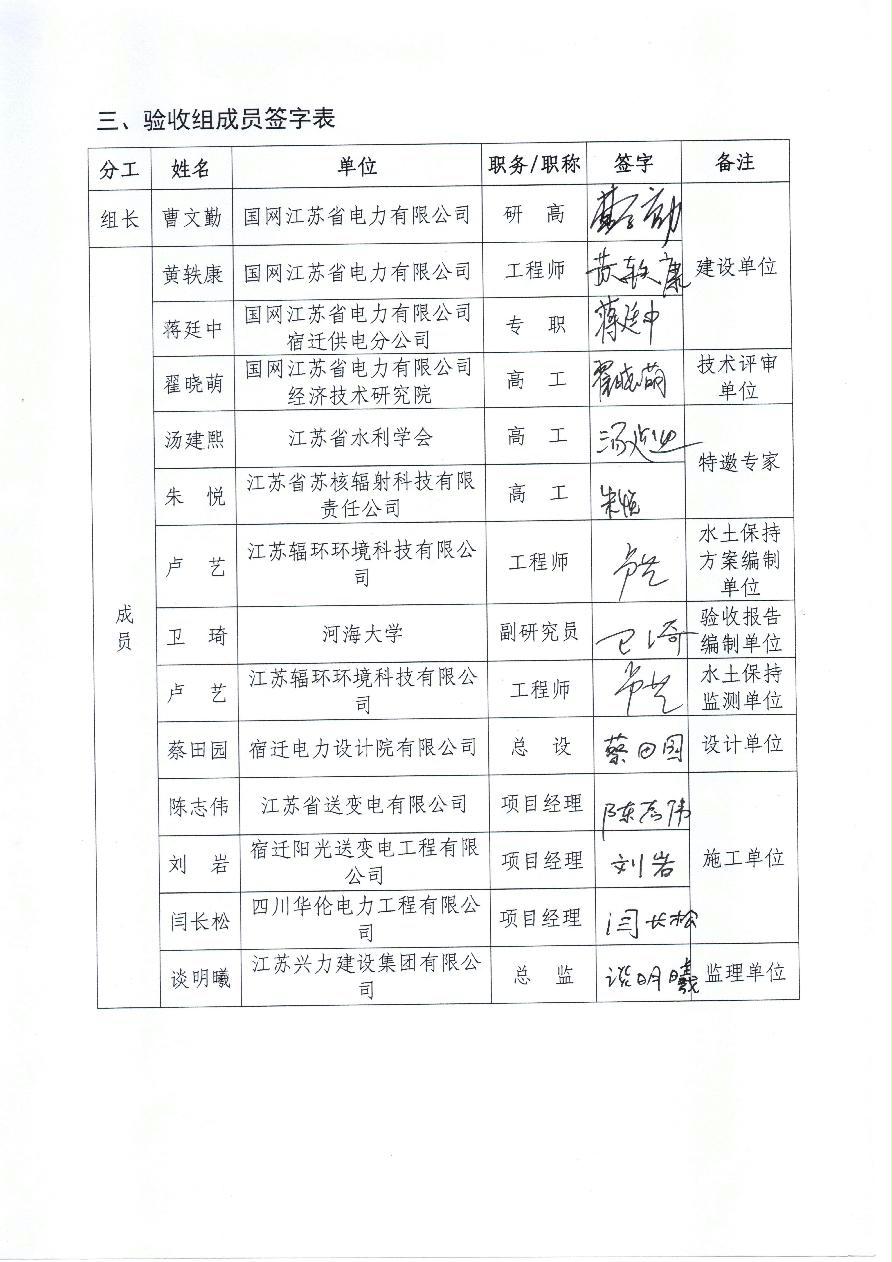 三、验收组成员签字表
分工 姓名 单位 职务/职称 签字 备注
组长 曹文勤 国网江苏省电力有限公司 研 高 曹文勤
黄轶康 国网江苏省电力有限公司 工程师 黄轶康 建设单位
蒋廷中 国网江苏省电力有限公司 专 职 蒋廷中
宿迁供电分公司
翟晓萌 国网江苏省电力有限公司 高 工 翟晓萌 技术评审
经济技术研究院 单位
汤建熙 江苏省水利学会 高 工
特邀专家
朱 悦 江苏省苏核辐射科技有限 高 工 朱悦
责任公司
卢 艺 江苏辐环环境科技有限公 工程师 卢艺 水土保持
司 方案编制
单位
成
员
卫 琦 河海大学 副研究员 卫琦 验收报告
编制单位
卢 艺 江苏辐环环境科技有限公 工程师 卢艺 水土保持
司 监测单位
蔡田园 宿迁电力设计院有限公司 总 设 蔡田园 设计单位
陈志伟 江苏省送变电有限公司 项目经理 陈志伟
刘 岩 宿迁阳光送变电工程有限 项目经理 刘岩 施工单位
公司
闫长松 四川华伦电力工程有限公 项目经理 闫长松
司
谈明曦 江苏兴力建设集团有限公 总 监 谈明曦 监理单位
司